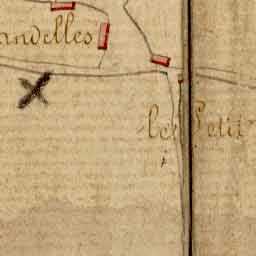 andelles
le Petit